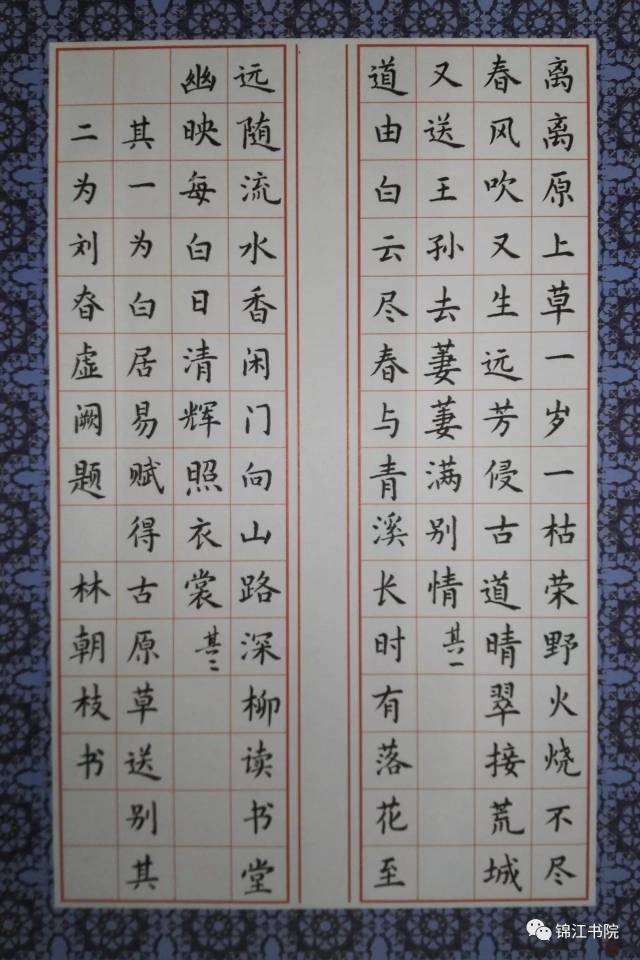 离离原上草一岁一枯荣野火烧不尽
春风吹又生远芳侵古道晴翠接荒城
又送王孙去萋萋满别情 其一
道由白云尽春与青溪长时有落花至
远随流水香闲门向山路深柳读书堂
幽映每白日清辉照衣裳 其二
其一为白居易赋得古原草送别其
二为刘昚虚阙题 林朝枝书
锦江书院